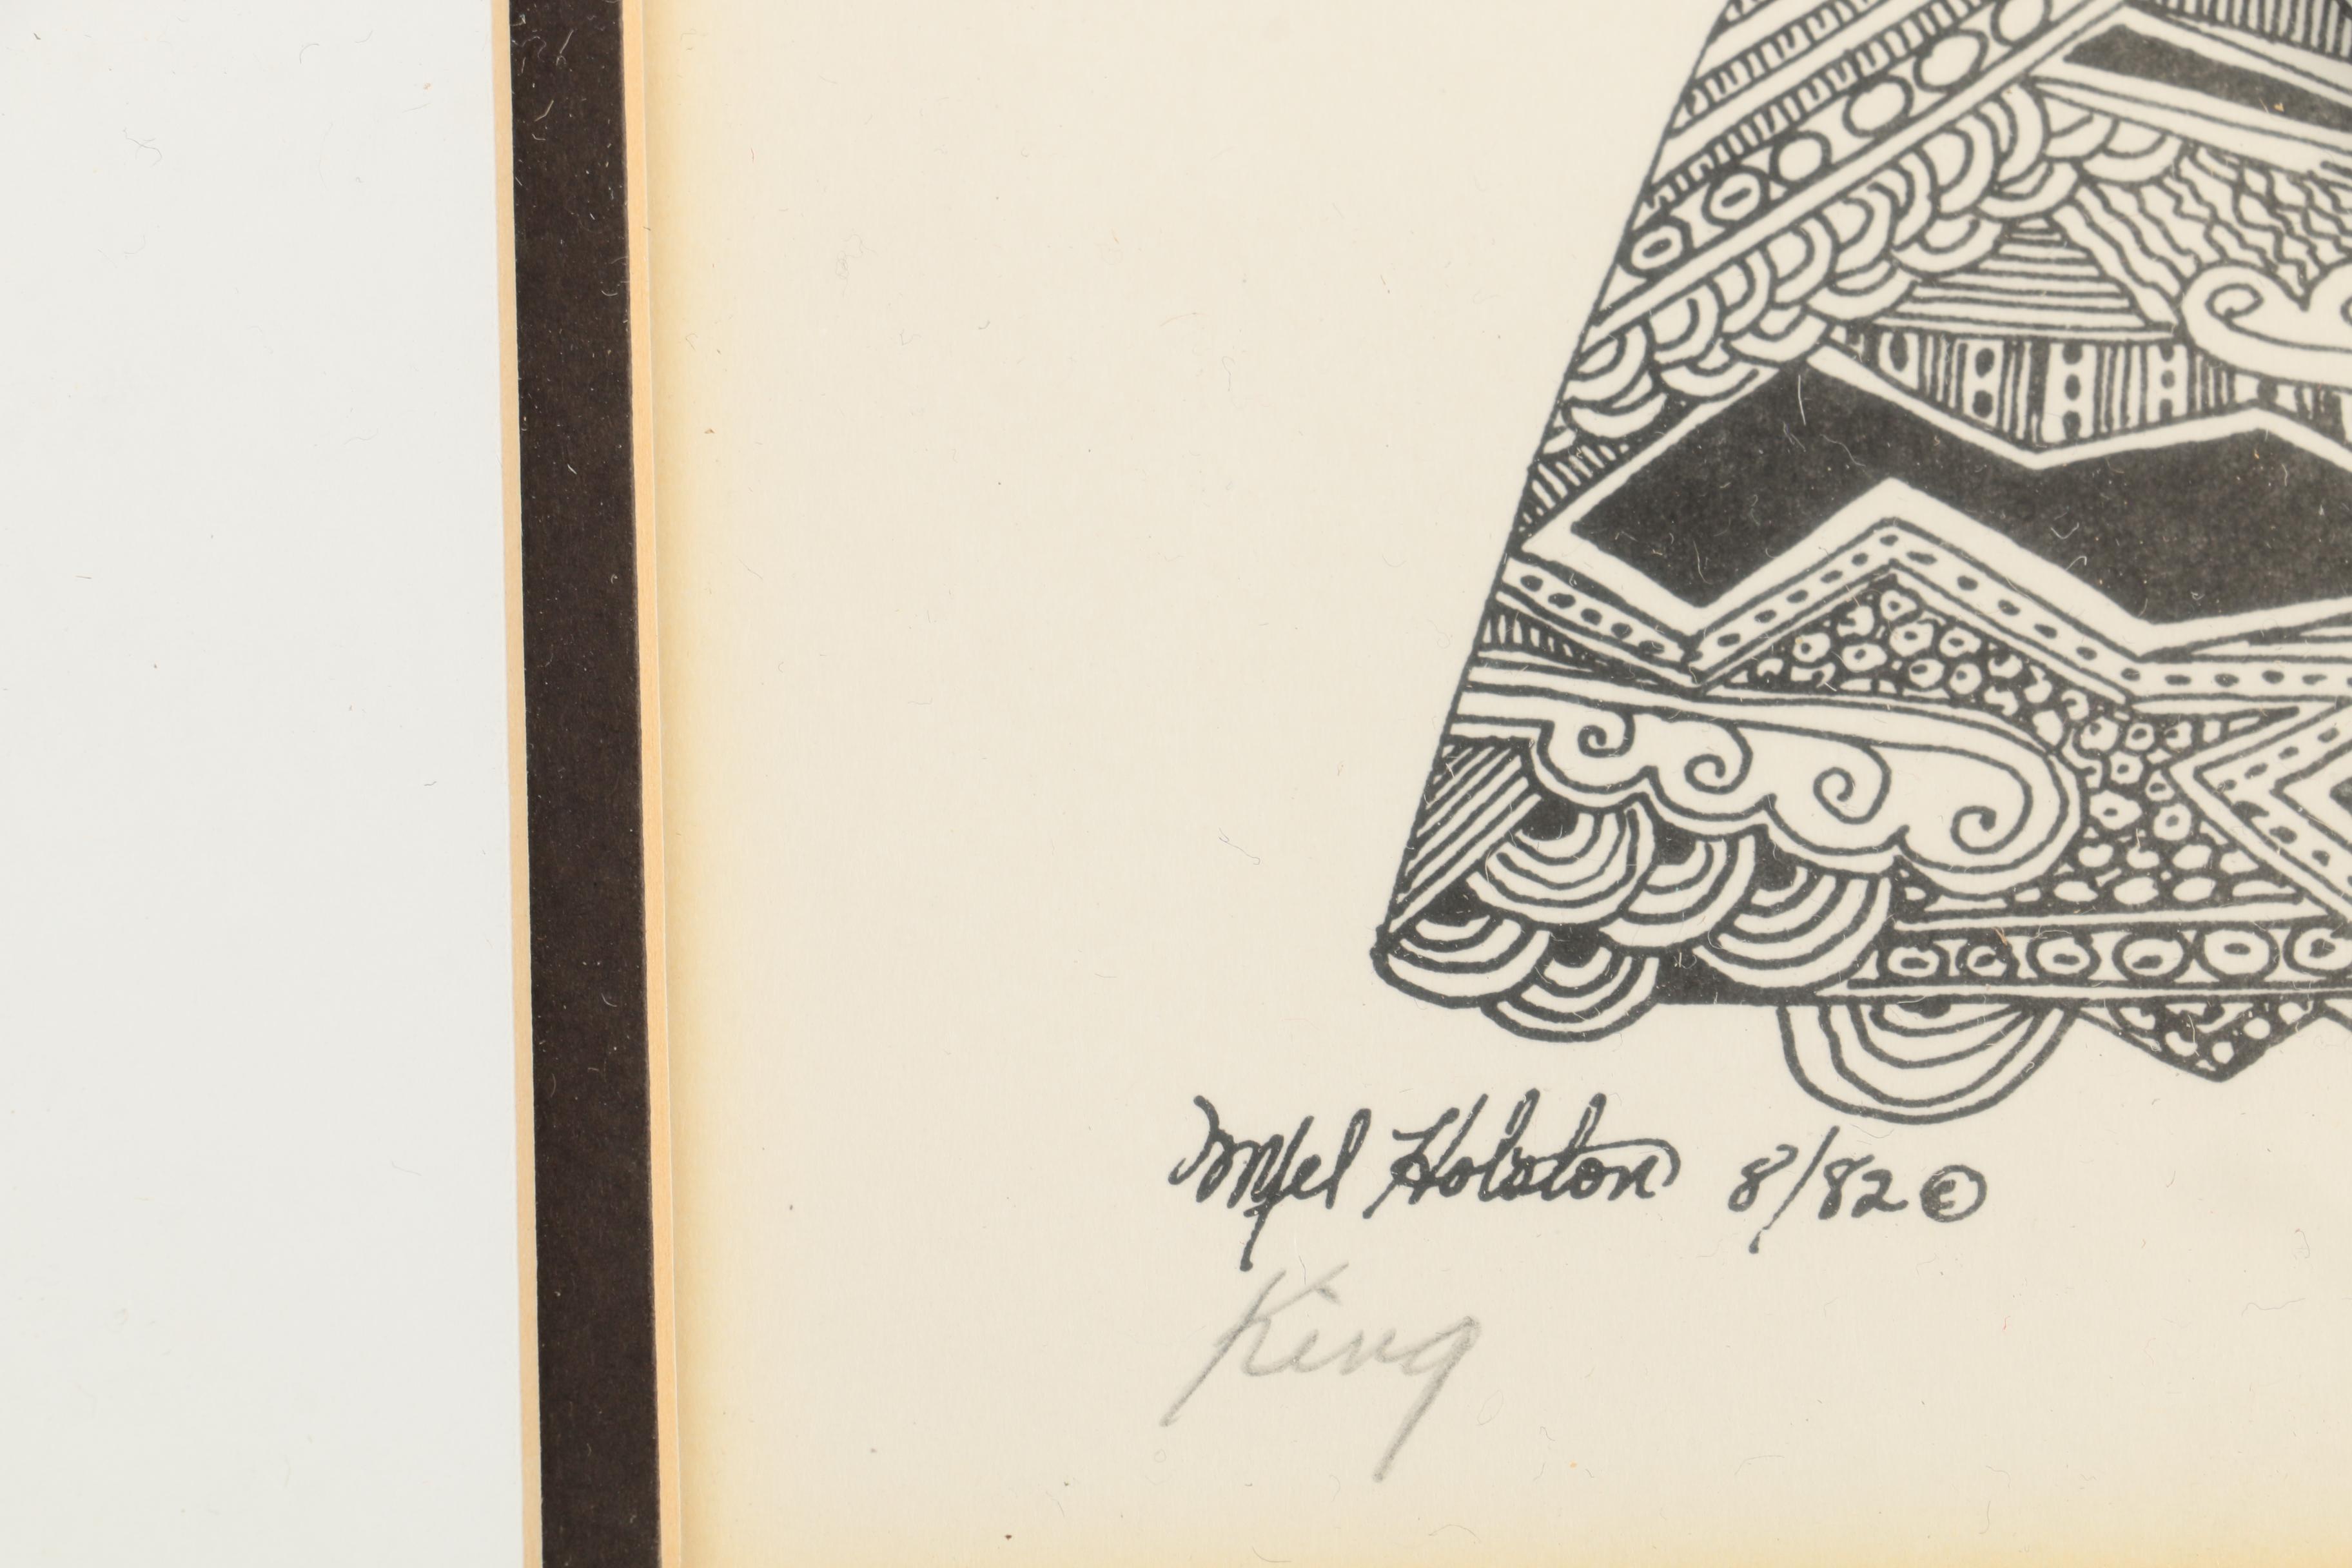 Mel Holston 8/82 ©
King